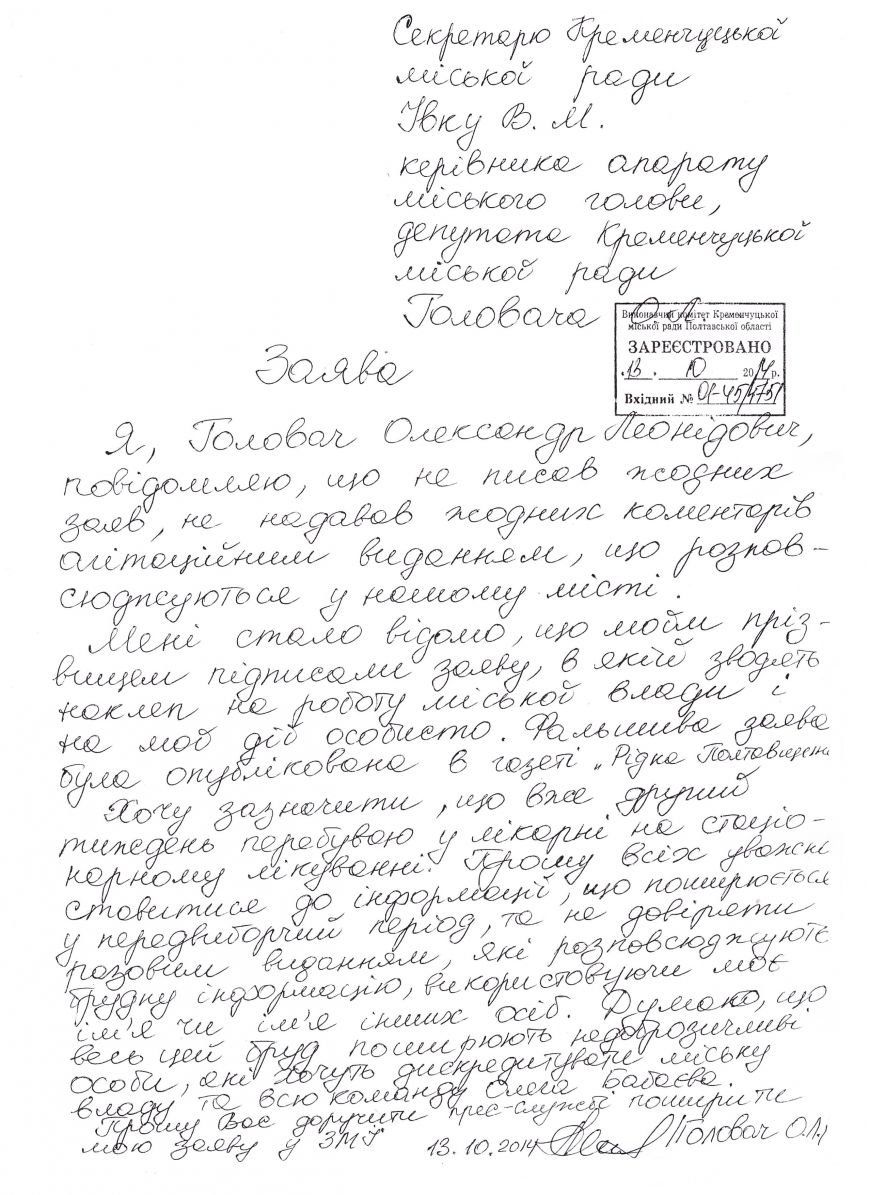 Секретарю Кременчуцької
міської ради
Івку В. М.
керівника апарату
міського голови,
депутата Кременчуцької
міської ради
Головача О.Л.
Виконавчий комітет Кременчуцької
міської ради Полтавської області
ЗАРЕЄСТРОВАНО
13. 10 2014 р.
Вхідний №
Заява
Я, Головач Олександр Леонідович,
повідомляю, що не писав жодних
заяв, не надавав жодних коментарів
агітаційним виданням, що розпов-
сюджуються у нашому місті.
Мені стало відомо, що моїм пріз-
вищем підписали заяву, в якій зводять
наклеп на роботу міської влади і
на мої дії особисто. Фальшива заява
була опублікована в газеті „Рідна Полтавщина
Хочу зазначити, що вже другий
тиждень перебуваю у лікарні на стаціо-
нарному лікуванні. Прошу всіх уважні
ставитися до інформації, що поширюється
у передвиборчий період, та не довіряти
разовим виданням, які розповсюджують
брудну інформацію, використовуючи моє
ім'я чи ім'я інших осіб. Думаю, що
весь цей бруд поширюють недоброзичливі
особи, які хочуть дискредитувати міську
владу та всю команду Олега Бабаєва.
Прошу Вас доручити прес-службі поширити
мою заяву у ЗМІ 13.10.2014 /Головач О.Л./